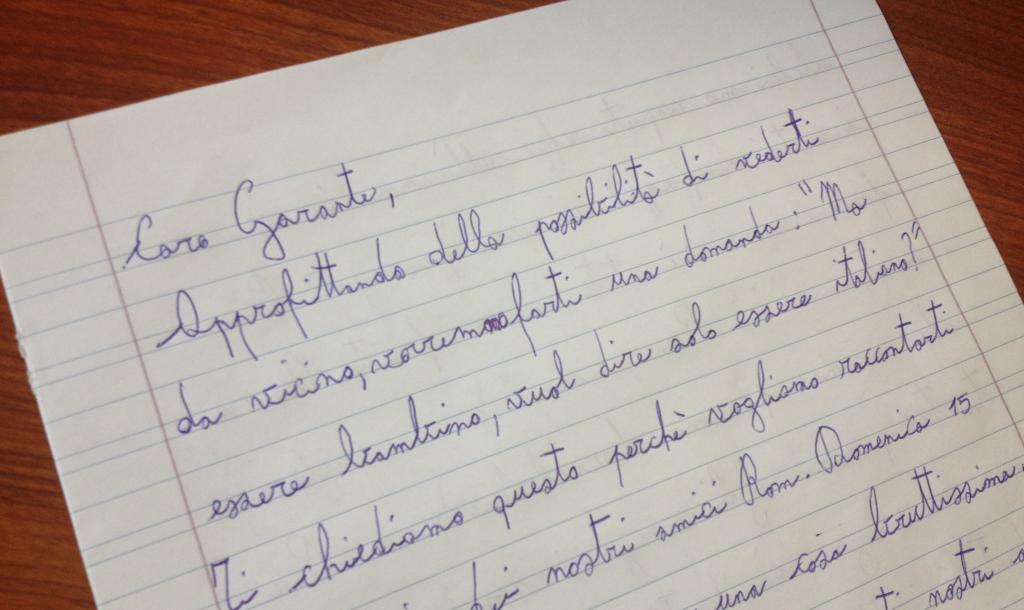 Caro Garante,
Approfittando della possibilità di vederti
da vicino, vorremmo farti una domanda: "Ma
essere bambino, vuol dire solo essere italiano?"
Ti chiediamo questo perchè vogliamo raccontarti
dei nostri amici Rom. Domenica 15
una cosa bruttissima
nostri